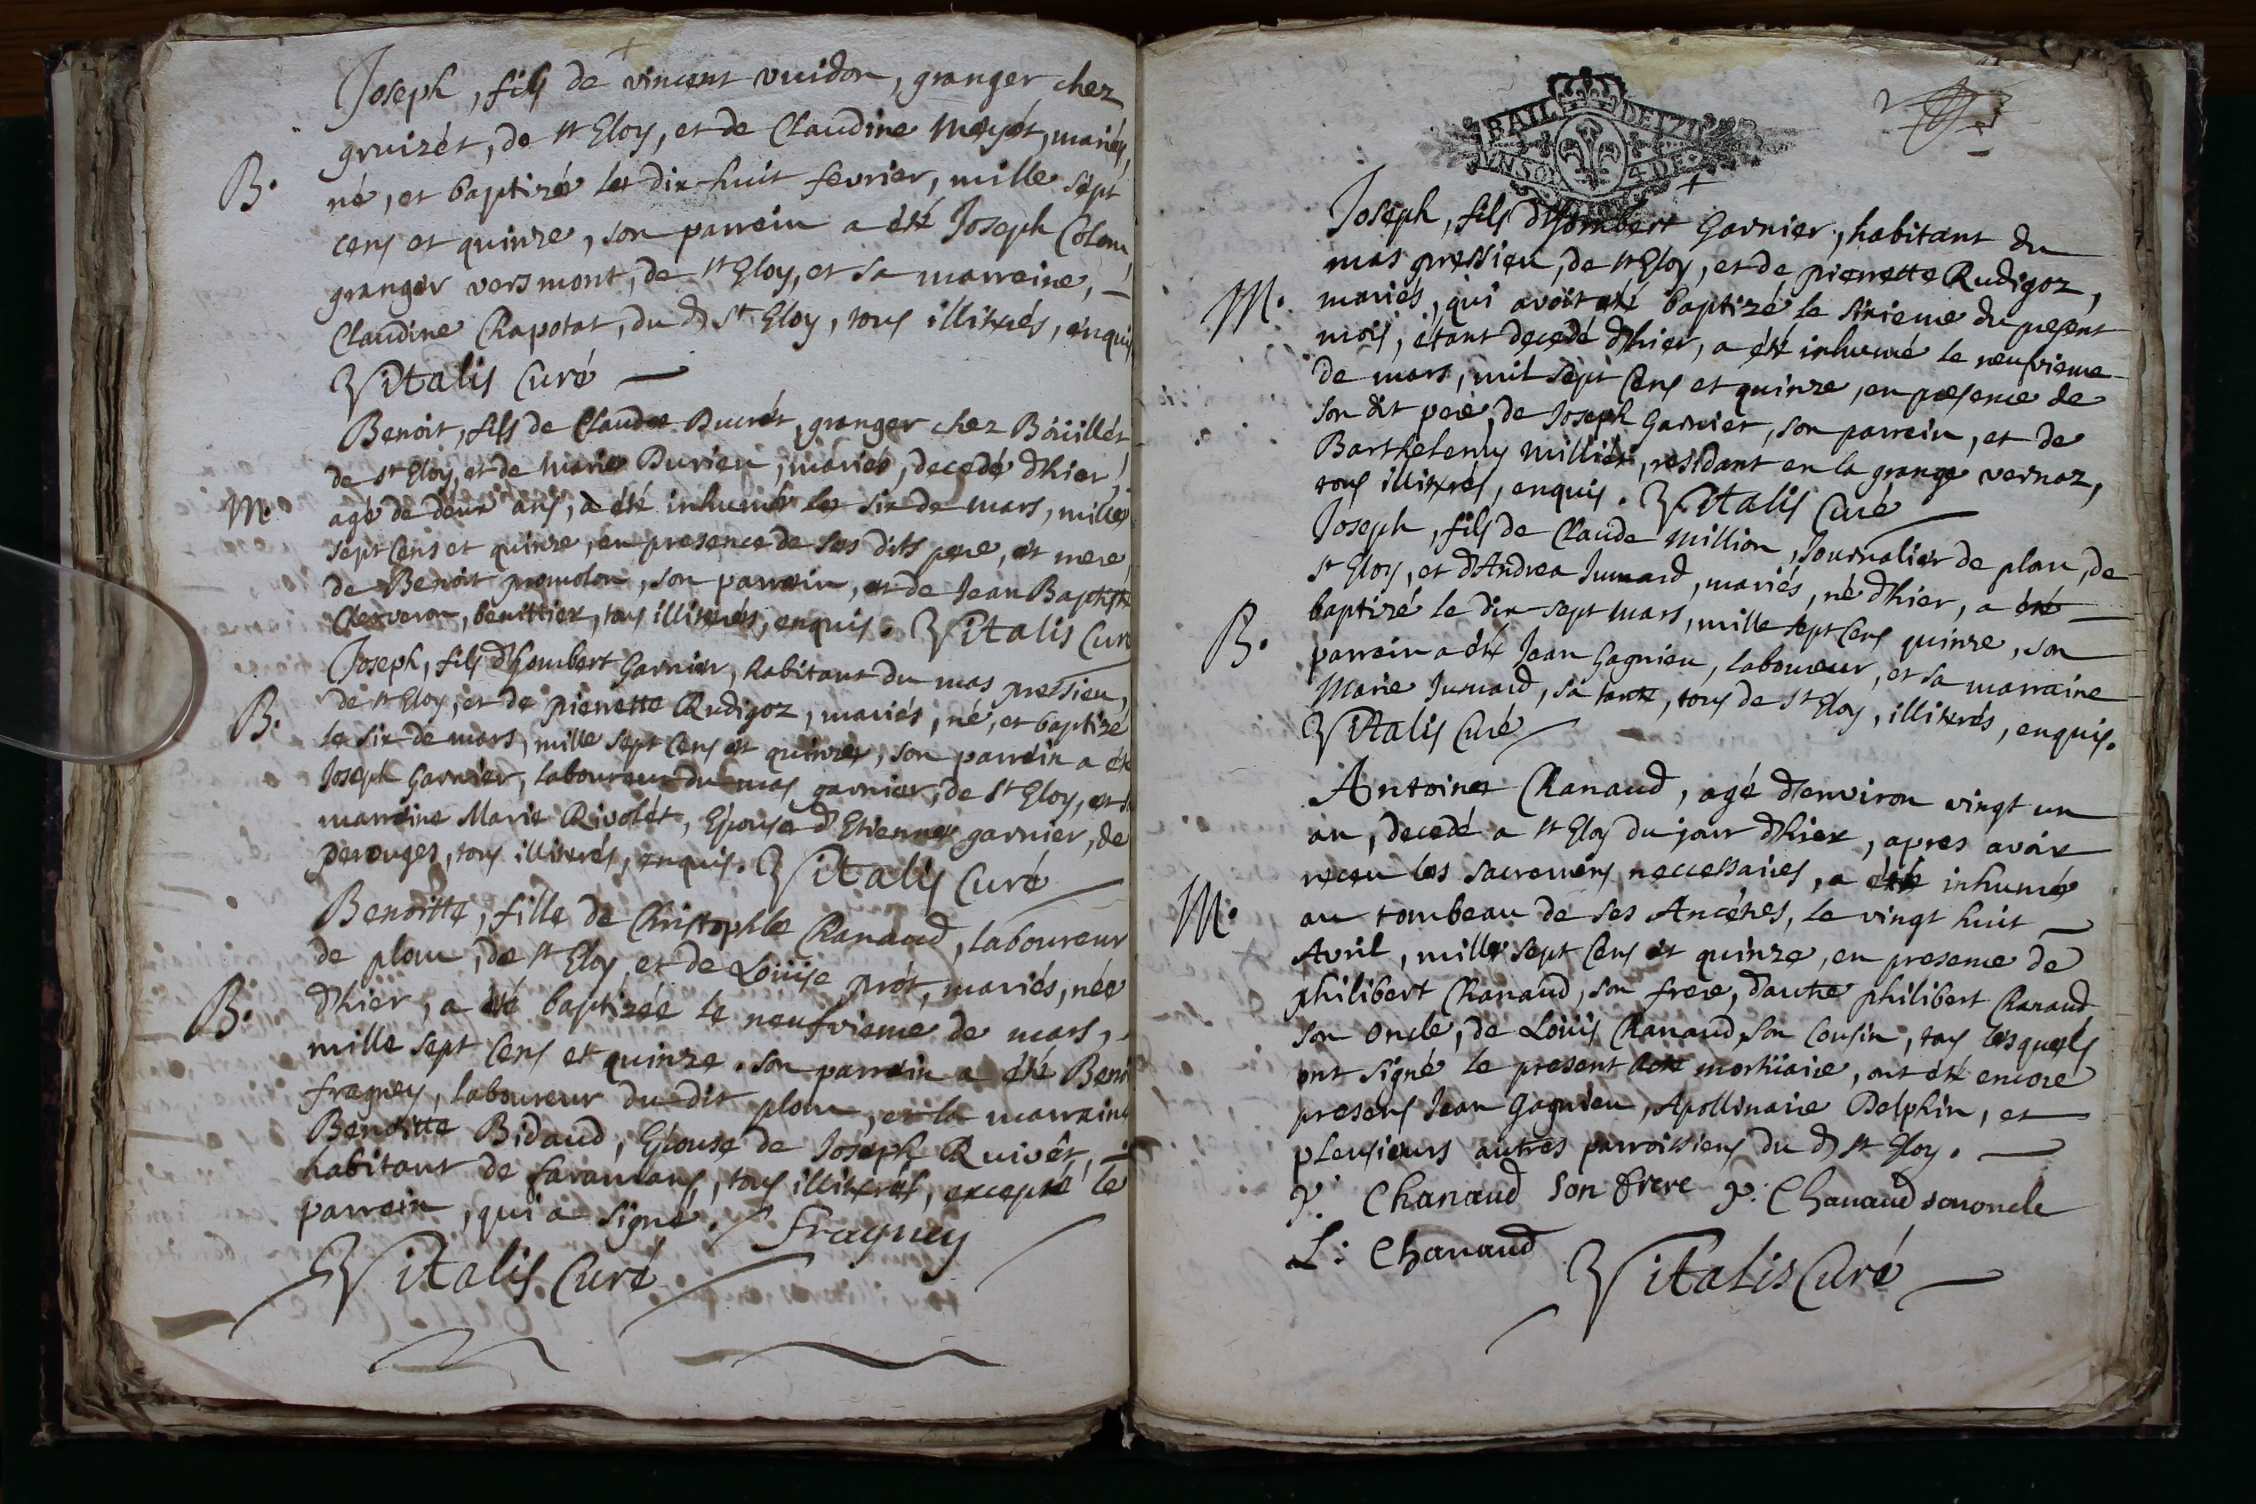 Joseph, fils de vincent vuidon, granger chez
gruizét, de st Eloy, et de Claudine Meyét, mariés,
B. né, et baptizé le dix-huit fevrier, mille sept
cens et quinze, son parrein a été Joseph Colom,
granger versmont, de st Eloy, et sa marreine,
Claudine Chapotat, du d st Eloy, tous illiterés, enquis
Vitalis Curé
Benoit, fils de Claude Ducrét, granger chez Boüillét
de st Eloy, et de marie Durieu, mariés, decedé dhier,
M. agé de deux ans, a été inhumé le six de mars, mille
sept cens et quinze, en presence de ses dits pere, et mere,
de Benoit promolon, son parrein, et de Jean Baptiste
Cherveron, benittier, tous illiterés, enquis. Vitalis Curé
Joseph, fils dhombert Garnier, habitant du mas pressieu,
de st Eloy, et de pierrette Rudigoz, mariés, né, et baptizé
B. le six de mars, mille sept cens et quinze, son parrein a été
Joseph Garnier, laboureur du mas garnier, de st Eloy, et sa
marreine Marie Rivolét, Epouse d'Etienne garnier, de
perouges, tous illiterés, enquis. Vitalis Curé
Benoitte, fille de Christophle Chanaud, laboureur
de plou, de st Eloy, et de Loüise prót, mariés, née
B. dhier, a été baptizée le neufvieme de mars,
mille sept cens et quinze. son parrein a été Benoi
fragney, laboureur du dit plou, et la marraine
Benoitte Bidaud, Epouse de Joseph Quivét,
habitant de faramans, tous illiterés, excepté le
parrein, qui a signé. fragney
Vitalis Curé
BAIL DE 1711
UN SOL 4 DE
2
Joseph, fils dhombert Garnier, habitant du
mas pressieu, de st Eloy, et de pierrette Rudigoz,
M. mariés, qui avoit été baptizé le sixieme du present
mois, étant decedé dhier, a été inhumé le neufvieme
de mars, mil sept cens et quinze, en presence de
son dit pere, de Joseph Garnier, son parrein, et de
Barthelemy milliét, residant en la grange vernoz,
tous illiterés, enquis. Vitalis Curé
Joseph, fils de Claude Million, Journalier de plou, de
st Eloy, et d'Andrea Jumard, mariés, né dhier, a été
B. baptizé le dix sept mars, mille sept cens quinze, son
parrein a été Jean Gagnieu, laboureur, et sa marraine
Marie Jumard, sa tante, tous de st Eloy, illiterés, enquis.
Vitalis Curé
Antoine Chanaud, agé d'environ vingt un
an, decedé a st Eloy du jour dhier, apres avoir
receu les sacremens neccessaires, a été inhumé
M. au tombeau de ses Ancétres, le vingt huit
Avril, mille sept cens et quinze, en presence de
philibert Chanaud, son frere, d'autre philibert Chanaud
son oncle, de Loüis Chanaud son Cousin, tous lesquels
ont signé le present acte mortüaire, ont été encore
presens Jean Gagnieu, Apollinaire Delphin, et
plusieurs autres parroissiens du d st Eloy.
p. Chanaud son frere p. Chanaud son oncle
L: Chanaud
Vitalis Curé